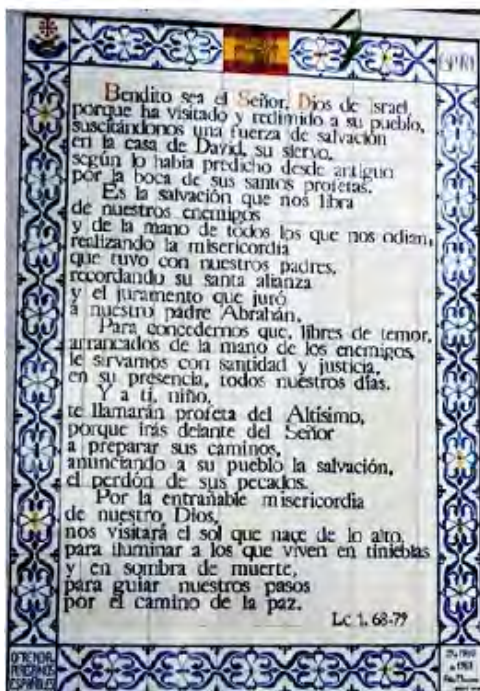 Bendito sea el Señor, Dios de Israel,
porque ha visitado y redimido a su pueblo,
suscitándonos una fuerza de salvación
en la casa de David, su siervo,
según lo había predicho desde antiguo
por la boca de sus santos profetas.
Es la salvación que nos libra
de nuestros enemigos
y de la mano de todos los que nos odian,
realizando la misericordia
que tuvo con nuestros padres,
recordando su santa alianza
y el juramento que juró
a nuestro padre Abrahán.
Para concedernos que, libres de temor,
arrancados de la mano de los enemigos,
le sirvamos con santidad y justicia,
en su presencia, todos nuestros días.
Y a ti, niño,
te llamarán profeta del Altísimo,
porque irás delante del Señor
a preparar sus caminos,
anunciando a su pueblo la salvación,
el perdón de sus pecados.
Por la entrañable misericordia
de nuestro Dios,
nos visitará el sol que nace de lo alto,
para iluminar a los que viven en tinieblas
y en sombra de muerte,
para guiar nuestros pasos
por el camino de la paz.
Lc 1, 68-79
PEREGRINOS
ESPAÑOLES